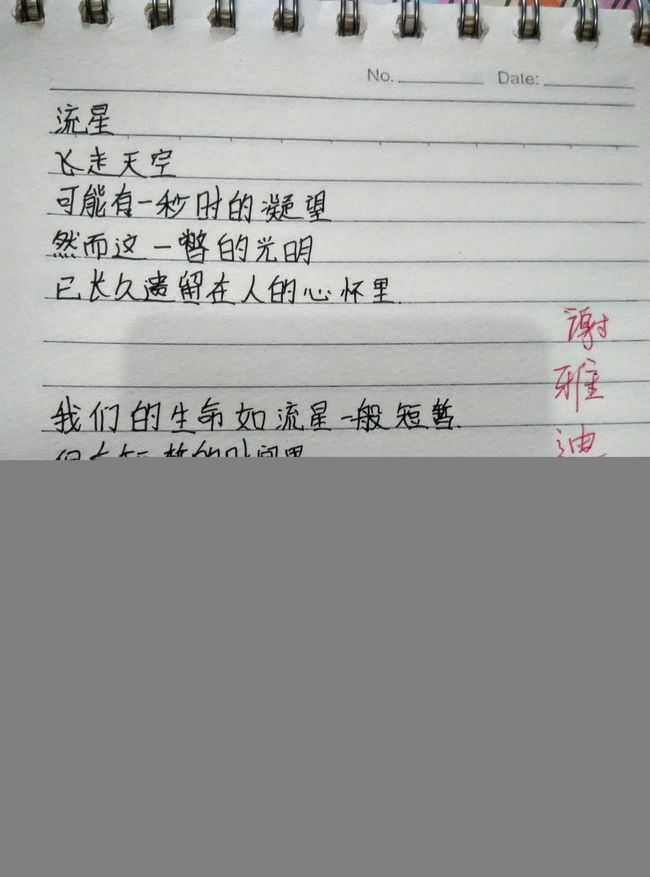 No. Date:
流星
飞走天空
可能有一秒时的凝望
然而这一瞥的光明
已长久遗留在人的心怀里.
我们的生命如流星一般短暂.
谢雅迪